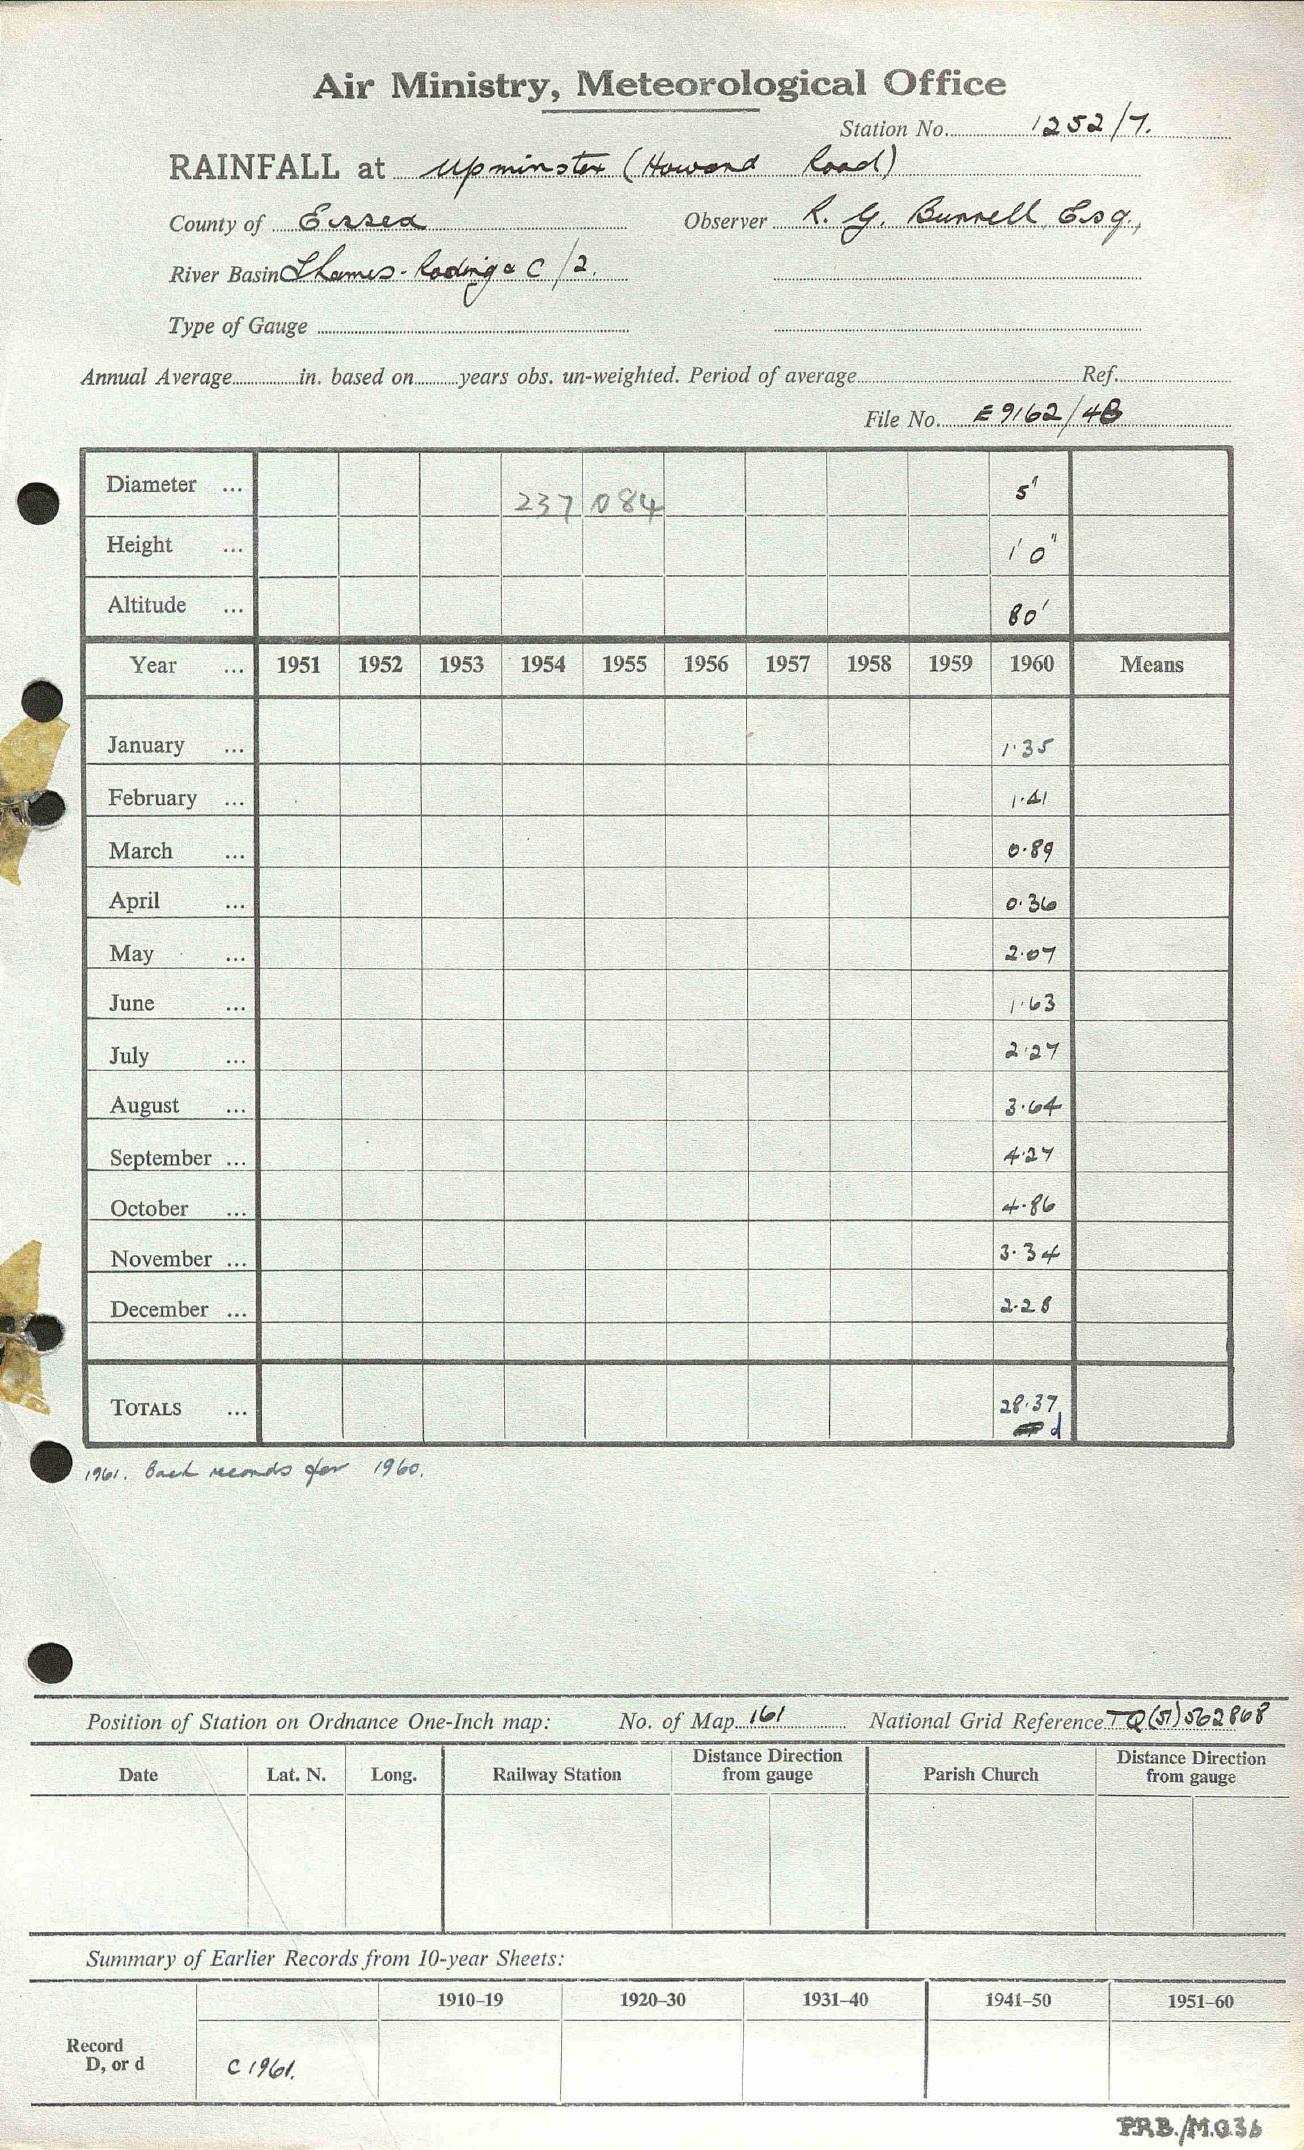 Air Ministry, Meteorological Office
Station No. 1252/7.
RAINFALL at Upminster (Howard Road)
County of Essex Observer R. G. Burrell, Esq.,
River Basin Thames-Roding & C/2.
Type of Gauge
Annual Average in. based on years obs. un-weighted. Period of average Ref.
File No. E9162/4B
Diameter ... 237 084 5"
Height ... 1' 0"
Altitude ... 80'
Year ... 1951 1952 1953 1954 1955 1956 1957 1958 1959 1960 Means
January ... 1.35
February ... 1.41
March ... 0.89
April ... 0.36
May ... 2.07
June ... 1.63
July ... 2.27
August ... 3.64
September ... 4.27
October ... 4.86
November ... 3.34
December ... 2.28
TOTALS ... 28.37
d
1961. Back records for 1960.
Position of Station on Ordnance One-Inch map: No. of Map 161 National Grid Reference TQ(51)562868
Date Lat. N. Long. Railway Station Distance Direction from gauge Parish Church Distance Direction from gauge
Summary of Earlier Records from 10-year Sheets:
1910–19 1920–30 1931–40 1941–50 1951–60
Record
D, or d C 1961.
P.R.B./M.O.36